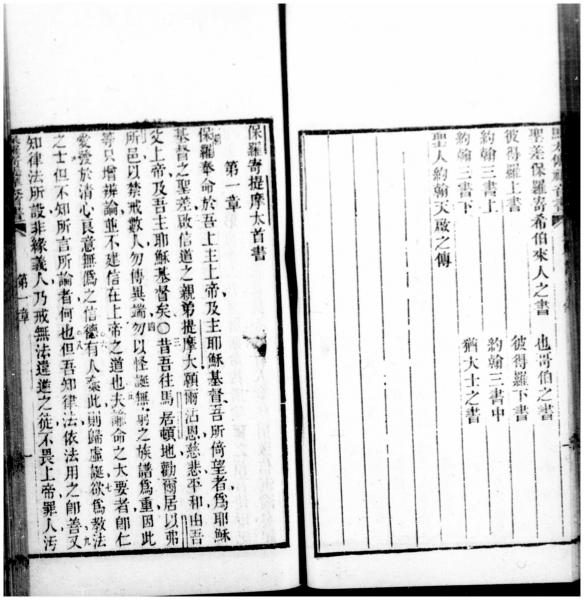 聖差保羅寄希伯來人之書　也哥伯之書
彼得羅上書　彼得羅下書
約翰三書上　約翰三書中
約翰三書下　猶大士之書
聖人約翰天啟之傳
保羅寄提摩太首書
第一章
保羅奉命於吾上主上帝及主耶穌基督吾所倚望者為耶穌
基督之聖差啟信道之親弟提摩太願爾沾恩慈悲平和由吾
父上帝及吾主耶穌基督矣〇昔吾往馬居頓地勸爾居以弗
所邑以禁戒數人勿傳異端勿以怪誕無窮之族譜為重因此
等只增辨論並不建信在上帝之道也夫誡命之大要者卽仁
愛發於清心良意無偽之信德有人棄此則歸虛誕欲為教法
之士但不知所言所論者何也但吾知律法依法用之卽善又
知律法所設非緣義人乃戒無法違道之徒不畏上帝罪人汚
第一章